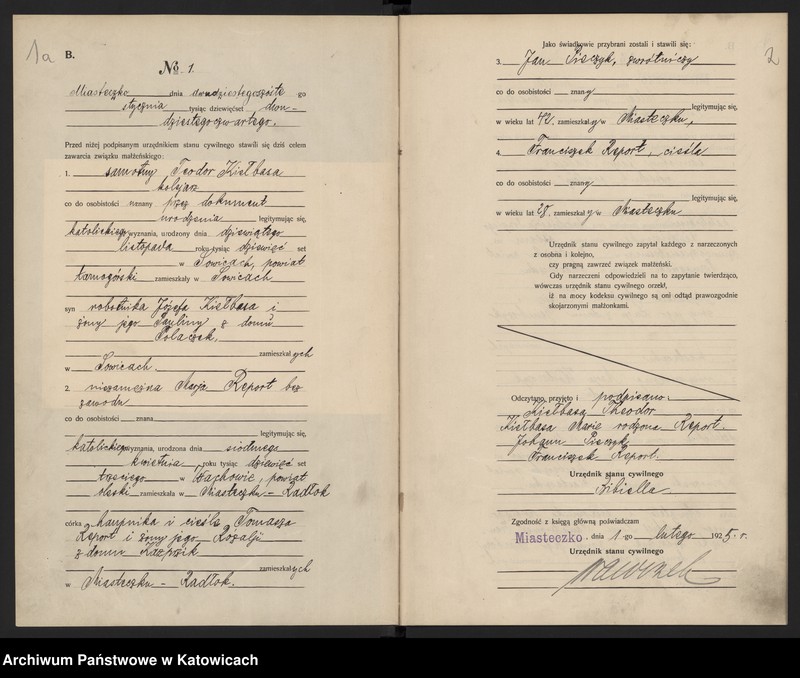 1a
B.
No 1.
Miasteczko dnia dwudziestegoszóste go
stycznia, tysiąc dziewięćset dwu-
dziestegoczwartego.
Przed niżej podpisanym urzędnikiem stanu cywilnego stawili się dziś celem
zawarcia związku małżeńskiego:
1. samotny Teodor Kiełbasa
kolejarz
co do osobistości znany przez dokument
urodzenia legitymując się,
katolickiego wyznania, urodzony dnia dziewiątego
listopada roku tysiąc dziewięć set
w Sowicach, powiat
tarnogórski zamieszkały w Sowicach
syn robotnika Józefa Kiełbasa i
żony jego Pauliny z domu
Polaczek.
zamieszkałych
w Sowicach.
2. niezamężna Marja Report bez
zawodu
co do osobistości znana
legitymując się,
katolickiego wyznania, urodzona dnia siódmego
kwietnia, roku tysiąc dziewięć set
trzeciego w Wachowie, powiat
oleski zamieszkała w Miasteczku - Radłok
córka chałupnika i cieśle Tomasza
Report i żony jego Rozalji
z domu
zamieszkałych
w Miasteczku - Radłok.
2
Jako świadkowie przybrani zostali i stawili się:
3. Jan Piszczyk, zwrótniczy
co do osobistości znany
legitymując się,
w wieku lat 42. zamieszkały w Miasteczku,
4. Franciszek Report, cieśla
co do osobistości znany
legitymując się,
w wieku lat 28. zamieszkały w Miasteczku
Urzędnik stanu cywilnego zapytał każdego z narzeczonych
z osobna i kolejno,
czy pragną zawrzeć związek małżeński.
Gdy narzeczeni odpowiedzieli na to zapytanie twierdząco,
wówczas urzędnik stanu cywilnego orzekł,
iż na mocy kodeksu cywilnego są oni odtąd prawozgodnie
skojarzonymi małżonkami.
Odczytano, przyjęto i podpisano:
Kiełbasa Theodor
Kiełbasa Marie rodzona Report.
Johann
Franciszek Report.
Urzędnik stanu cywilnego
Kibiella
Zgodność z księgą główną poświadczam
Miasteczko, dnia 1-go lutego 1925. r.
Urzędnik stanu cywilnego
Archiwum Państwowe w Katowicach